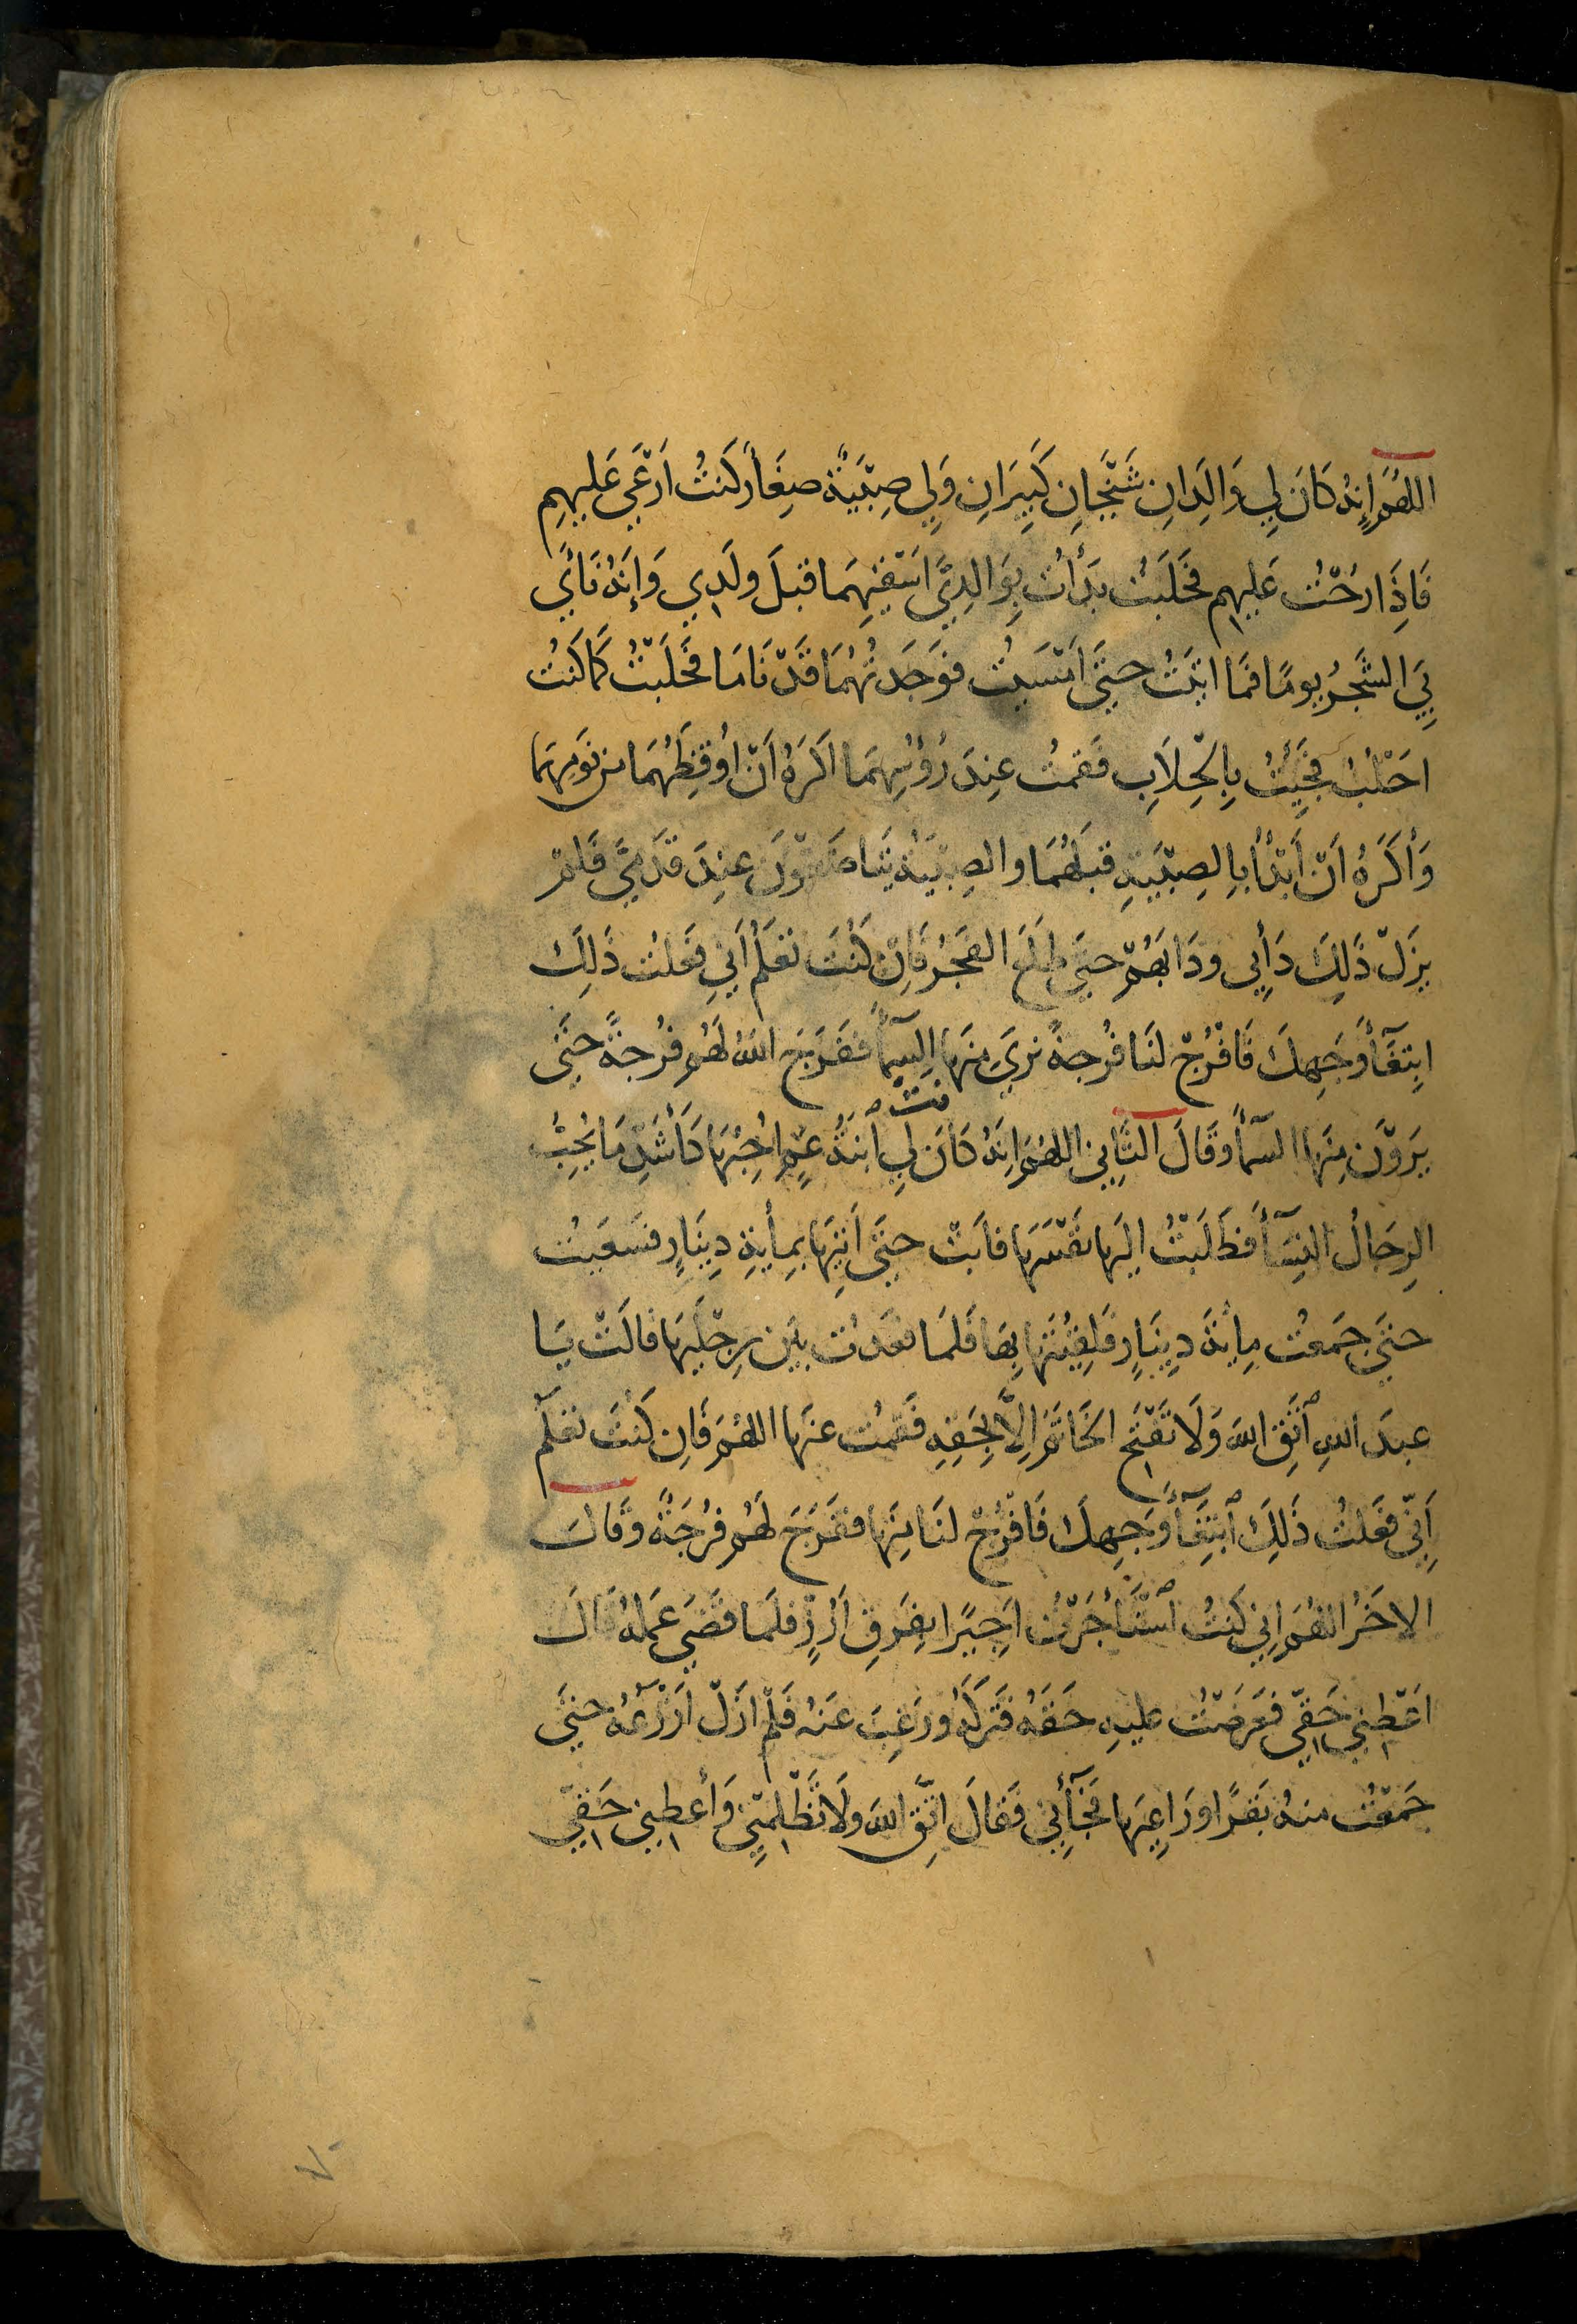 اللهُمَّ إنهُ كَانَ لِي وَالِدَانِ شَيْخَانِ كَبِيرَانِ وَلِي صِبْيَةٌ صِغَارٌ كنتُ أَرْعَي عَليهِم
فَاِذَا رحْتُ عَليهِم فحَلَبْتُ بَدَأتُ بِوَالِدَيَّ اسْقِيهِمَا قبلَ ولَدِي وَإنَهُ نَأَي
بِيَ الشَّجَرُ يومًا فمَا اتيتُ حتيَ اَمْسَيتُ فوَجَدتُهُمَا قَدْ نَامَا فحَلَبْتُ كَمَا كنتُ
احْلبُ فجِئتُ بِالْحِلَابِ فقمتُ عِندَ رُؤسِهِمَا اكرَهُ اَنْ اوُقِظَهُمَا من نَومِهِمَا
وَأكرَهُ اَنْ أَبْدَأَ بالصِبْيَةِ قبلَهُمَا والصِبْيَةُ يَتَضَاغَوْنَ عِندَ قدَمَيَّ فَلمْ
يزَلْ ذَلِكَ دَأبِي ودَابَهُمْ حتيَ طلَعَ الفَجرُ فَاِنْ كُنتَ تعْلَمُ اَنِي فعَلتُ ذَلِكَ
ابتِغَآءَ وَجهِكَ فَافْرُجْ لنَا فُرجةً نرَيَ مِنهَا السمآءَ ففَرَجَ اللهُ لهُم فُرجةً حتيَ
يَرَوْنَ مِنهَا السمآءَ وقَالَ الثَّانِي اللهُمَ انَهُ كَانَ لِي ٱبنَةُ عَمٍّ احُبُهَا كَأَشَدِ مَا يُحِبُّ
نت
الرجَالُ النِسَآءَ فطَلَبْتُ اليهَا نفْسَهَا فابَتْ حتيَ اَتِيهَا بِمِأيةِ دِينَارٍ فسَعَيتُ
حتيَ جمَعتُ مِايةَ دِينَارٍ فلَقِيتُهَا بِهَا فلَمَا قعَدتُ بيَن رِجْليهَا قالَتْ يَا
عبدَ اللهِ ٱتَّقِ اللهَ وَلَا تَفْتَحِ الخَاتَمَ اِلَّا بِحَقِهِ فَقمتُ عنهَا اللهُمَ فَاِن كُنتَ تعْلَم
اَنِّي فعَلتُ ذَلِكَ ٱبتِغَآءَ وَجهِكَ فَافْرُجْ لنَا مِنهَا ففَرَجَ لهُم فُرجَةً وقَالَ
الاخَرُ اللهُمَ انِي كنتُ ٱسْتَأجَرْتُ اجِيرًا بِفَرقِ اَرُزٍّ فلَمَا قَضَي عَمَلهُ قَالَ
اعْطِنِي حَقِّي فعَرَضْتُ عليهِ حَقهُ فتَرَكَهُ ورَغِبَ عَنهُ فلَمْ ازَلْ ازْرَعُهُ حتيَ
جمَعْتُ منهُ بقَرًا ورَاعِيهَا فجَآءَنِي فَقَالَ اتَّقِ اللهَ ولَا تَظْلِمْنِي وَأعطِنِي حَقِّي